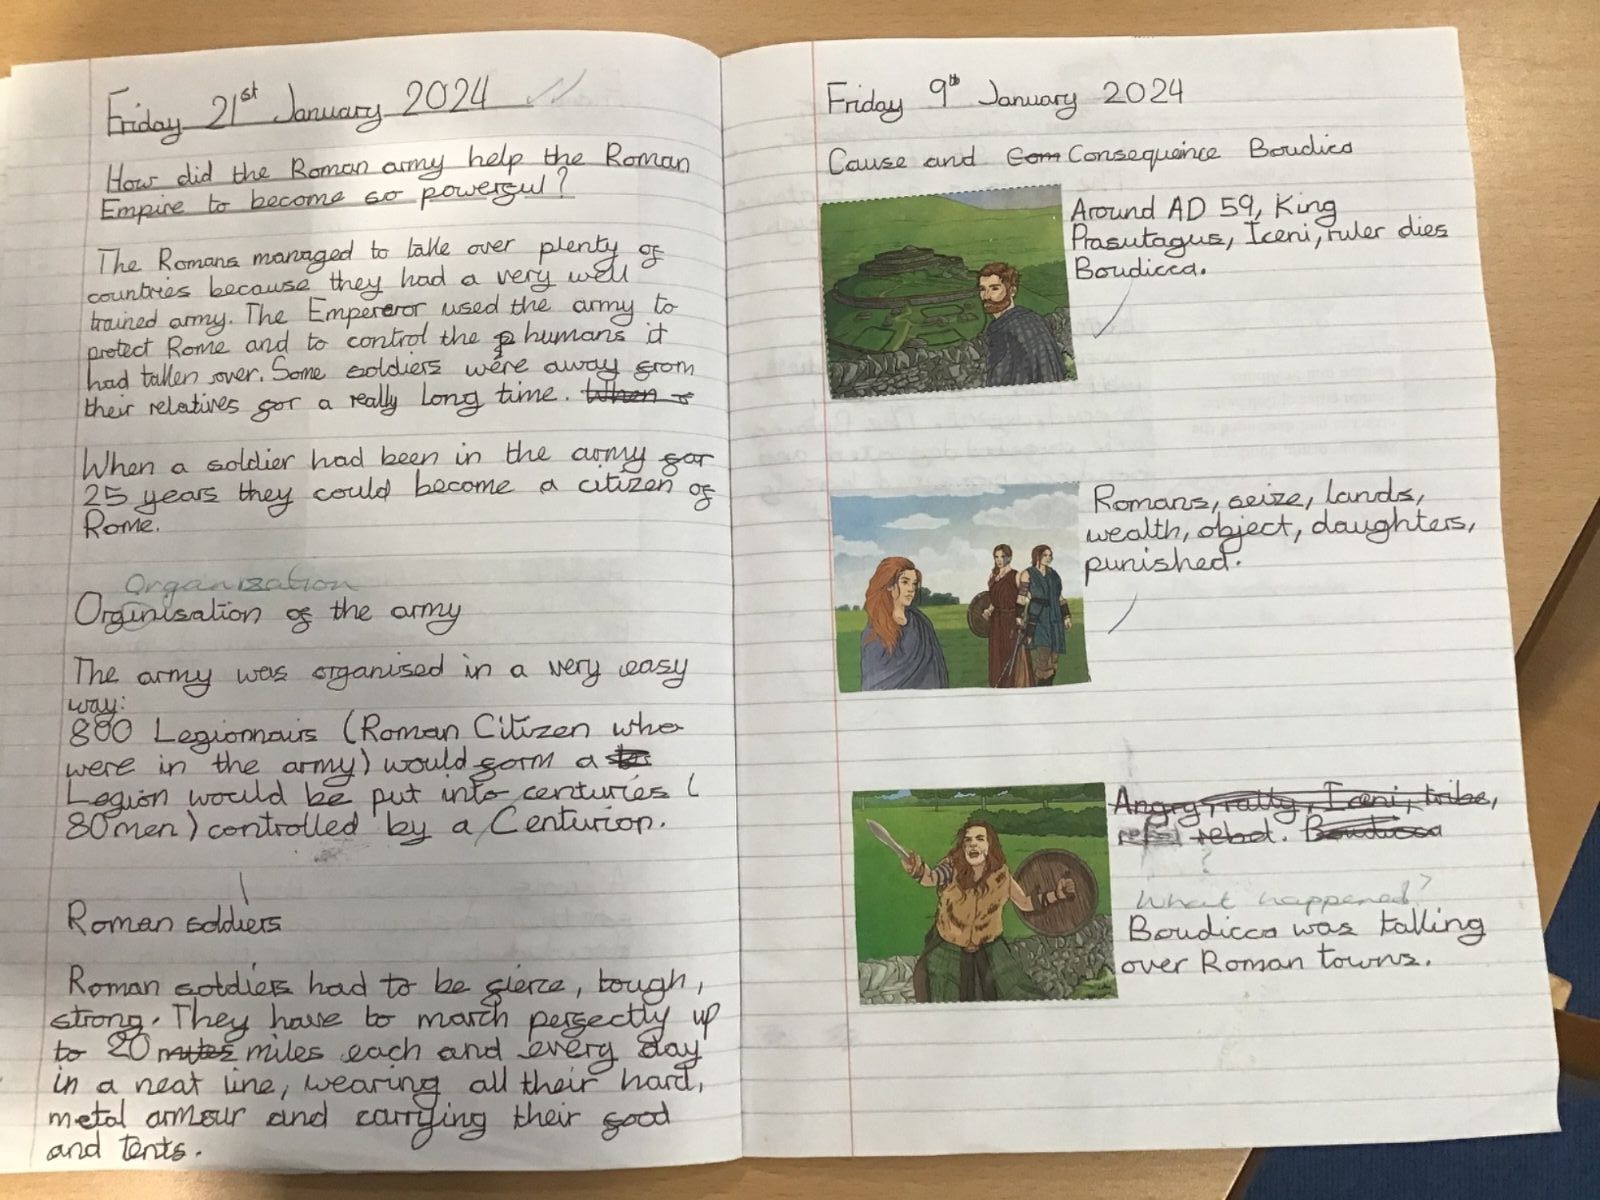 Friday 21st January 2024
How did the Roman army help the Roman
Empire to become so powerful?
The Romans managed to take over plenty of
countries because they had a very well
trained army. The Empereror used the army to
protect Rome and to control the humans it
had taken over. Some soldiers were away from
their relatives for a really long time. When
When a soldier had been in the army for
25 years they could become a citizen of
Rome.
Organization
Orginisation of the army
The army was organised in a very easy
way:
800 Legionnairs (Roman Citizen who
were in the army) would form a
Legion would be put into centuries (
80men) controlled by a Centurion.
Roman soldiers
Roman soldiers had to be fierce, tough,
strong. They have to march perfectly up
to 20 miles each and every day
in a neat line, wearing all their hard,
metal armour and carrying their food
and tents.
Friday 9th January 2024
Cause and Com Consequeince Boudica
Around AD 59, King
Prasutagus, Iceni, ruler dies
Boudicca.
Romans, seize, lands,
wealth, object, daughters,
punished.
Angry, rally, Iceni, tribe,
rebel. Boudicca
?
What happened?
Boudicca was talling
over Roman towns.